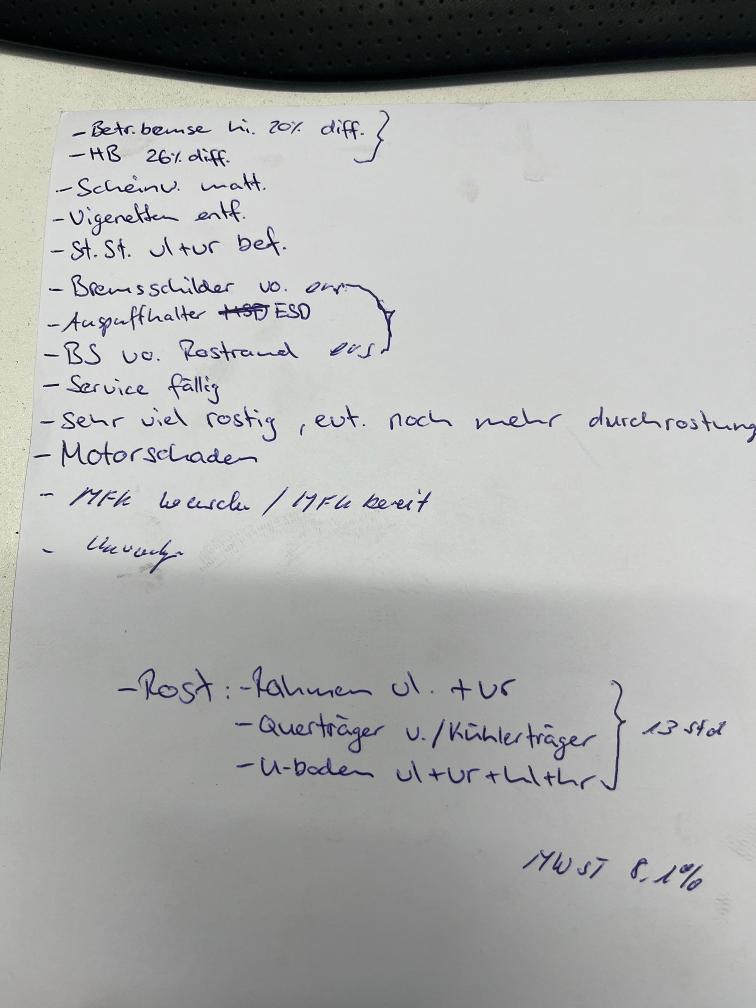 - Betr.bemse hi. 20% diff.
- HB 26% diff.
- Scheinw. matt.
- Vigenetten entf.
- St. St. vl+vr bef.
- Bremsschilder vo.
- Auspuffhalter ESD
- BS vo. Rostrand ers.
- Service fällig
- Sehr viel rostig, evt. noch mehr durchrostung
- Motorschaden
- MFK / MFK bereit
-
- Rost: - Rahmen vl. + vr
- Querträger v./Kühlerträger
- U-boden vl+vr+hl+hr
13 std
MWST 8.1%